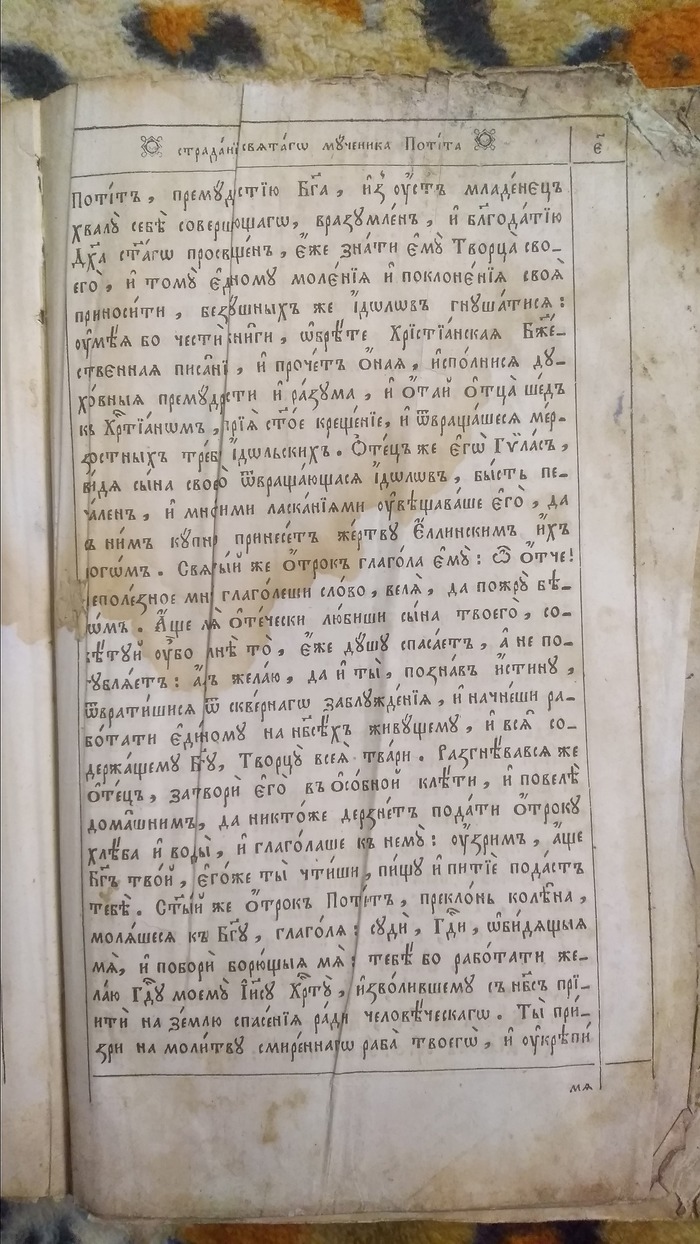 страда́нїе свѧта́гѡ мꙋ́ченика Поті́та є҃
Поті́тъ, премꙋ́дстїю Бг҃а, и҆з̾ ᲂу҆́стъ младе́нєцъ
хвалꙋ̀ себѣ̀ соверша́ющагѡ, вразꙋмле́нъ, и҆ бл҃года́тїю
Дх҃а ст҃а́гѡ просвѣще́нъ, є҆́же зна́ти є҆мꙋ̀ Творца̀ сво-
его̀, и҆ томꙋ̀ є҆ди́номꙋ моле́нїѧ и҆ поклоне́нїѧ своѧ̑
приноси́ти, бездꙋ́шныхъ же і҆́дѡлѡвъ гнꙋша́тисѧ:
ᲂу҆мѣ́ѧ бо че́сти кни̑ги, ѡ҆брѣ́те Хрїстїа́нскаѧ Бж҃е́-
ствєннаѧ писа̑нїѧ, и҆ проче́тъ ѻ҆́наѧ, и҆спо́лнисѧ дꙋ-
хо́вныѧ премꙋ́дрости и҆ ра́зꙋма, и҆ ѻ҆́тай ѻ҆тца̀ ше́дъ
къ Хрⷭ҇тїа́нѡмъ, прїѧ̀ ст҃о́е креще́нїе, и҆ ѿвраща́шесѧ ме́р-
зостныхъ тре́бъ і҆́дѡльскихъ. Ѻ҆те́цъ же є҆гѡ̀ Гѷла́съ,
ви́дѧ сы́на своего̀ ѿвраща́ющасѧ і҆́дѡлѡвъ, бы́сть пе-
ча́ленъ, и҆ мно́гими ласка́нїѧми ᲂу҆вѣщава́ше є҆го̀, да
съ ни́мъ кꙋ́пнѡ принесе́тъ же́ртвꙋ Є҆́ллинскимъ и҆́хъ
бого́мъ. Свѧты́й же ѻ҆́трокъ глаго́ла є҆мꙋ̀: Ѽ ѻ҆́тче!
неполе́зное мнѣ̀ глаго́леши сло́во, велѧ̀, да пожрꙋ̀ бѣ-
сѡ́мъ. А҆́ще мѧ̀ ѻ҆те́чески лю́биши сы́на твоего̀, со-
вѣ́тꙋй ᲂу҆̀бо мнѣ̀ то̀, є҆́же дꙋ́шꙋ спаса́етъ, а҆ не по-
гꙋблѧ́етъ: а҆́зъ жела́ю, да и҆ ты̀, позна́въ и҆́стинꙋ,
ѿврати́шисѧ ѿ скве́рнагѡ заблꙋжде́нїѧ, и҆ начне́ши ра-
бо́тати є҆ди́номꙋ на нб҃сѣ́хъ живꙋ́щемꙋ, и҆ всѧ̑ со-
держа́щемꙋ Бг҃ꙋ, Творцꙋ̀ всеѧ̀ тва́ри. Разгнѣ́вавсѧ же
ѻ҆те́цъ, затворѝ є҆го̀ въ ѻ҆со́бной клѣ́ти, и҆ повелѣ̀
дома̑шнимъ, да никто́же дерзне́тъ пода́ти ѻ҆́трокꙋ
хлѣ́ба и҆ воды̀, и҆ глаго́лаше къ немꙋ̀: ᲂу҆́зримъ, а҆́ще
Бг҃ъ тво́й, є҆го́же ты̀ чти́ши, пи́щꙋ и҆ питїѐ пода́стъ
тебѣ̀. Ст҃ы́й же ѻ҆́трокъ Поті́тъ, прекло́нь колѣ̑на,
молѧ́шесѧ къ Бг҃ꙋ, глаго́лѧ: сꙋдѝ, Гдⷭ҇и, ѡ҆би́дѧщыѧ
мѧ̀, и҆ поборѝ борю́щыѧ мѧ̀: тебѣ́ бо рабо́тати же-
ла́ю Гдⷭ҇ꙋ моемꙋ̀ І҆и҃сꙋ Хрⷭ҇тꙋ̀, и҆зво́лившемꙋ съ нб҃съ прї-
итѝ на зе́млю спасе́нїѧ ра́ди человѣ́ческагѡ. Ты̀ при́-
зри на моли́твꙋ смире́ннагѡ раба̀ твоегѡ̀, и҆ ᲂу҆крѣпѝ
мѧ